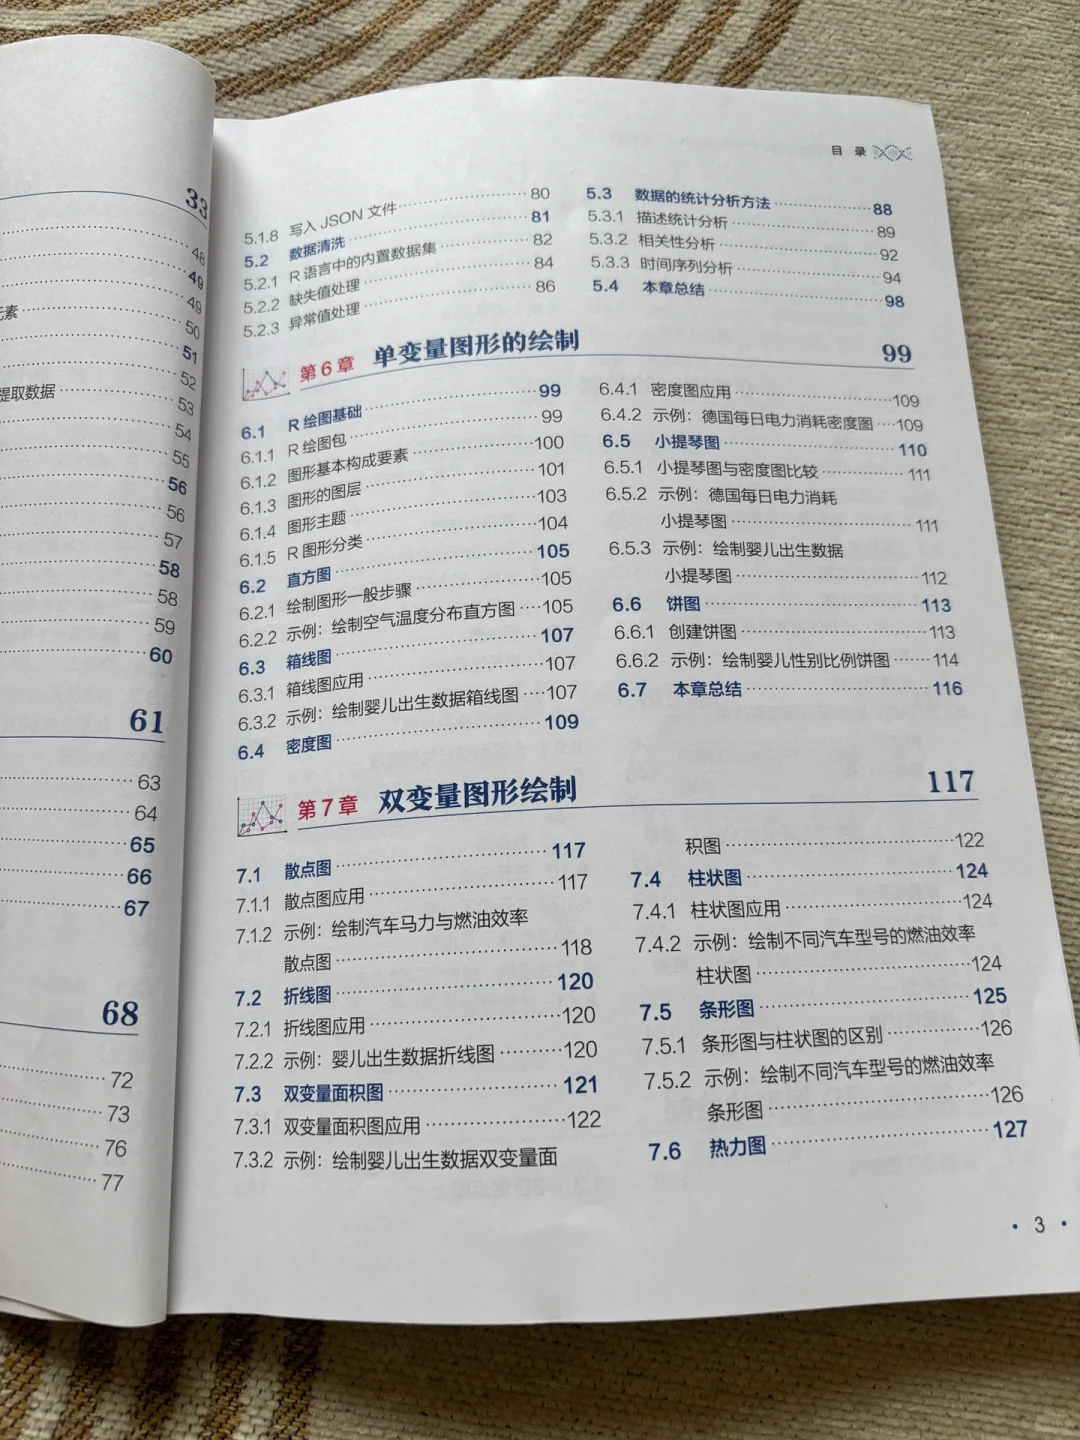 33
48
49
49
元素 50
51
52
提取数据 53
54
55
56
56
57
58
58
59
60
61
63
64
65
66
67
68
72
73
76
77
目 录
5.1.8 写入 JSON 文件 80
5.2 数据清洗 81
5.2.1 R 语言中的内置数据集 82
5.2.2 缺失值处理 84
5.2.3 异常值处理 86
5.3 数据的统计分析方法 88
5.3.1 描述统计分析 89
5.3.2 相关性分析 92
5.3.3 时间序列分析 94
5.4 本章总结 98
第 6 章 单变量图形的绘制 99
6.1 R 绘图基础 99
6.1.1 R 绘图包 99
6.1.2 图形基本构成要素 100
6.1.3 图形的图层 101
6.1.4 图形主题 103
6.1.5 R 图形分类 104
6.2 直方图 105
6.2.1 绘制图形一般步骤 105
6.2.2 示例：绘制空气温度分布直方图 105
6.3 箱线图 107
6.3.1 箱线图应用 107
6.3.2 示例：绘制婴儿出生数据箱线图 107
6.4 密度图 109
6.4.1 密度图应用 109
6.4.2 示例：德国每日电力消耗密度图 109
6.5 小提琴图 110
6.5.1 小提琴图与密度图比较 111
6.5.2 示例：德国每日电力消耗
小提琴图 111
6.5.3 示例：绘制婴儿出生数据
小提琴图 112
6.6 饼图 113
6.6.1 创建饼图 113
6.6.2 示例：绘制婴儿性别比例饼图 114
6.7 本章总结 116
第 7 章 双变量图形绘制 117
7.1 散点图 117
7.1.1 散点图应用 117
7.1.2 示例：绘制汽车马力与燃油效率
散点图 118
7.2 折线图 120
7.2.1 折线图应用 120
7.2.2 示例：婴儿出生数据折线图 120
7.3 双变量面积图 121
7.3.1 双变量面积图应用 122
7.3.2 示例：绘制婴儿出生数据双变量面
积图 122
7.4 柱状图 124
7.4.1 柱状图应用 124
7.4.2 示例：绘制不同汽车型号的燃油效率
柱状图 124
7.5 条形图 125
7.5.1 条形图与柱状图的区别 126
7.5.2 示例：绘制不同汽车型号的燃油效率
条形图 126
7.6 热力图 127
· 3 ·